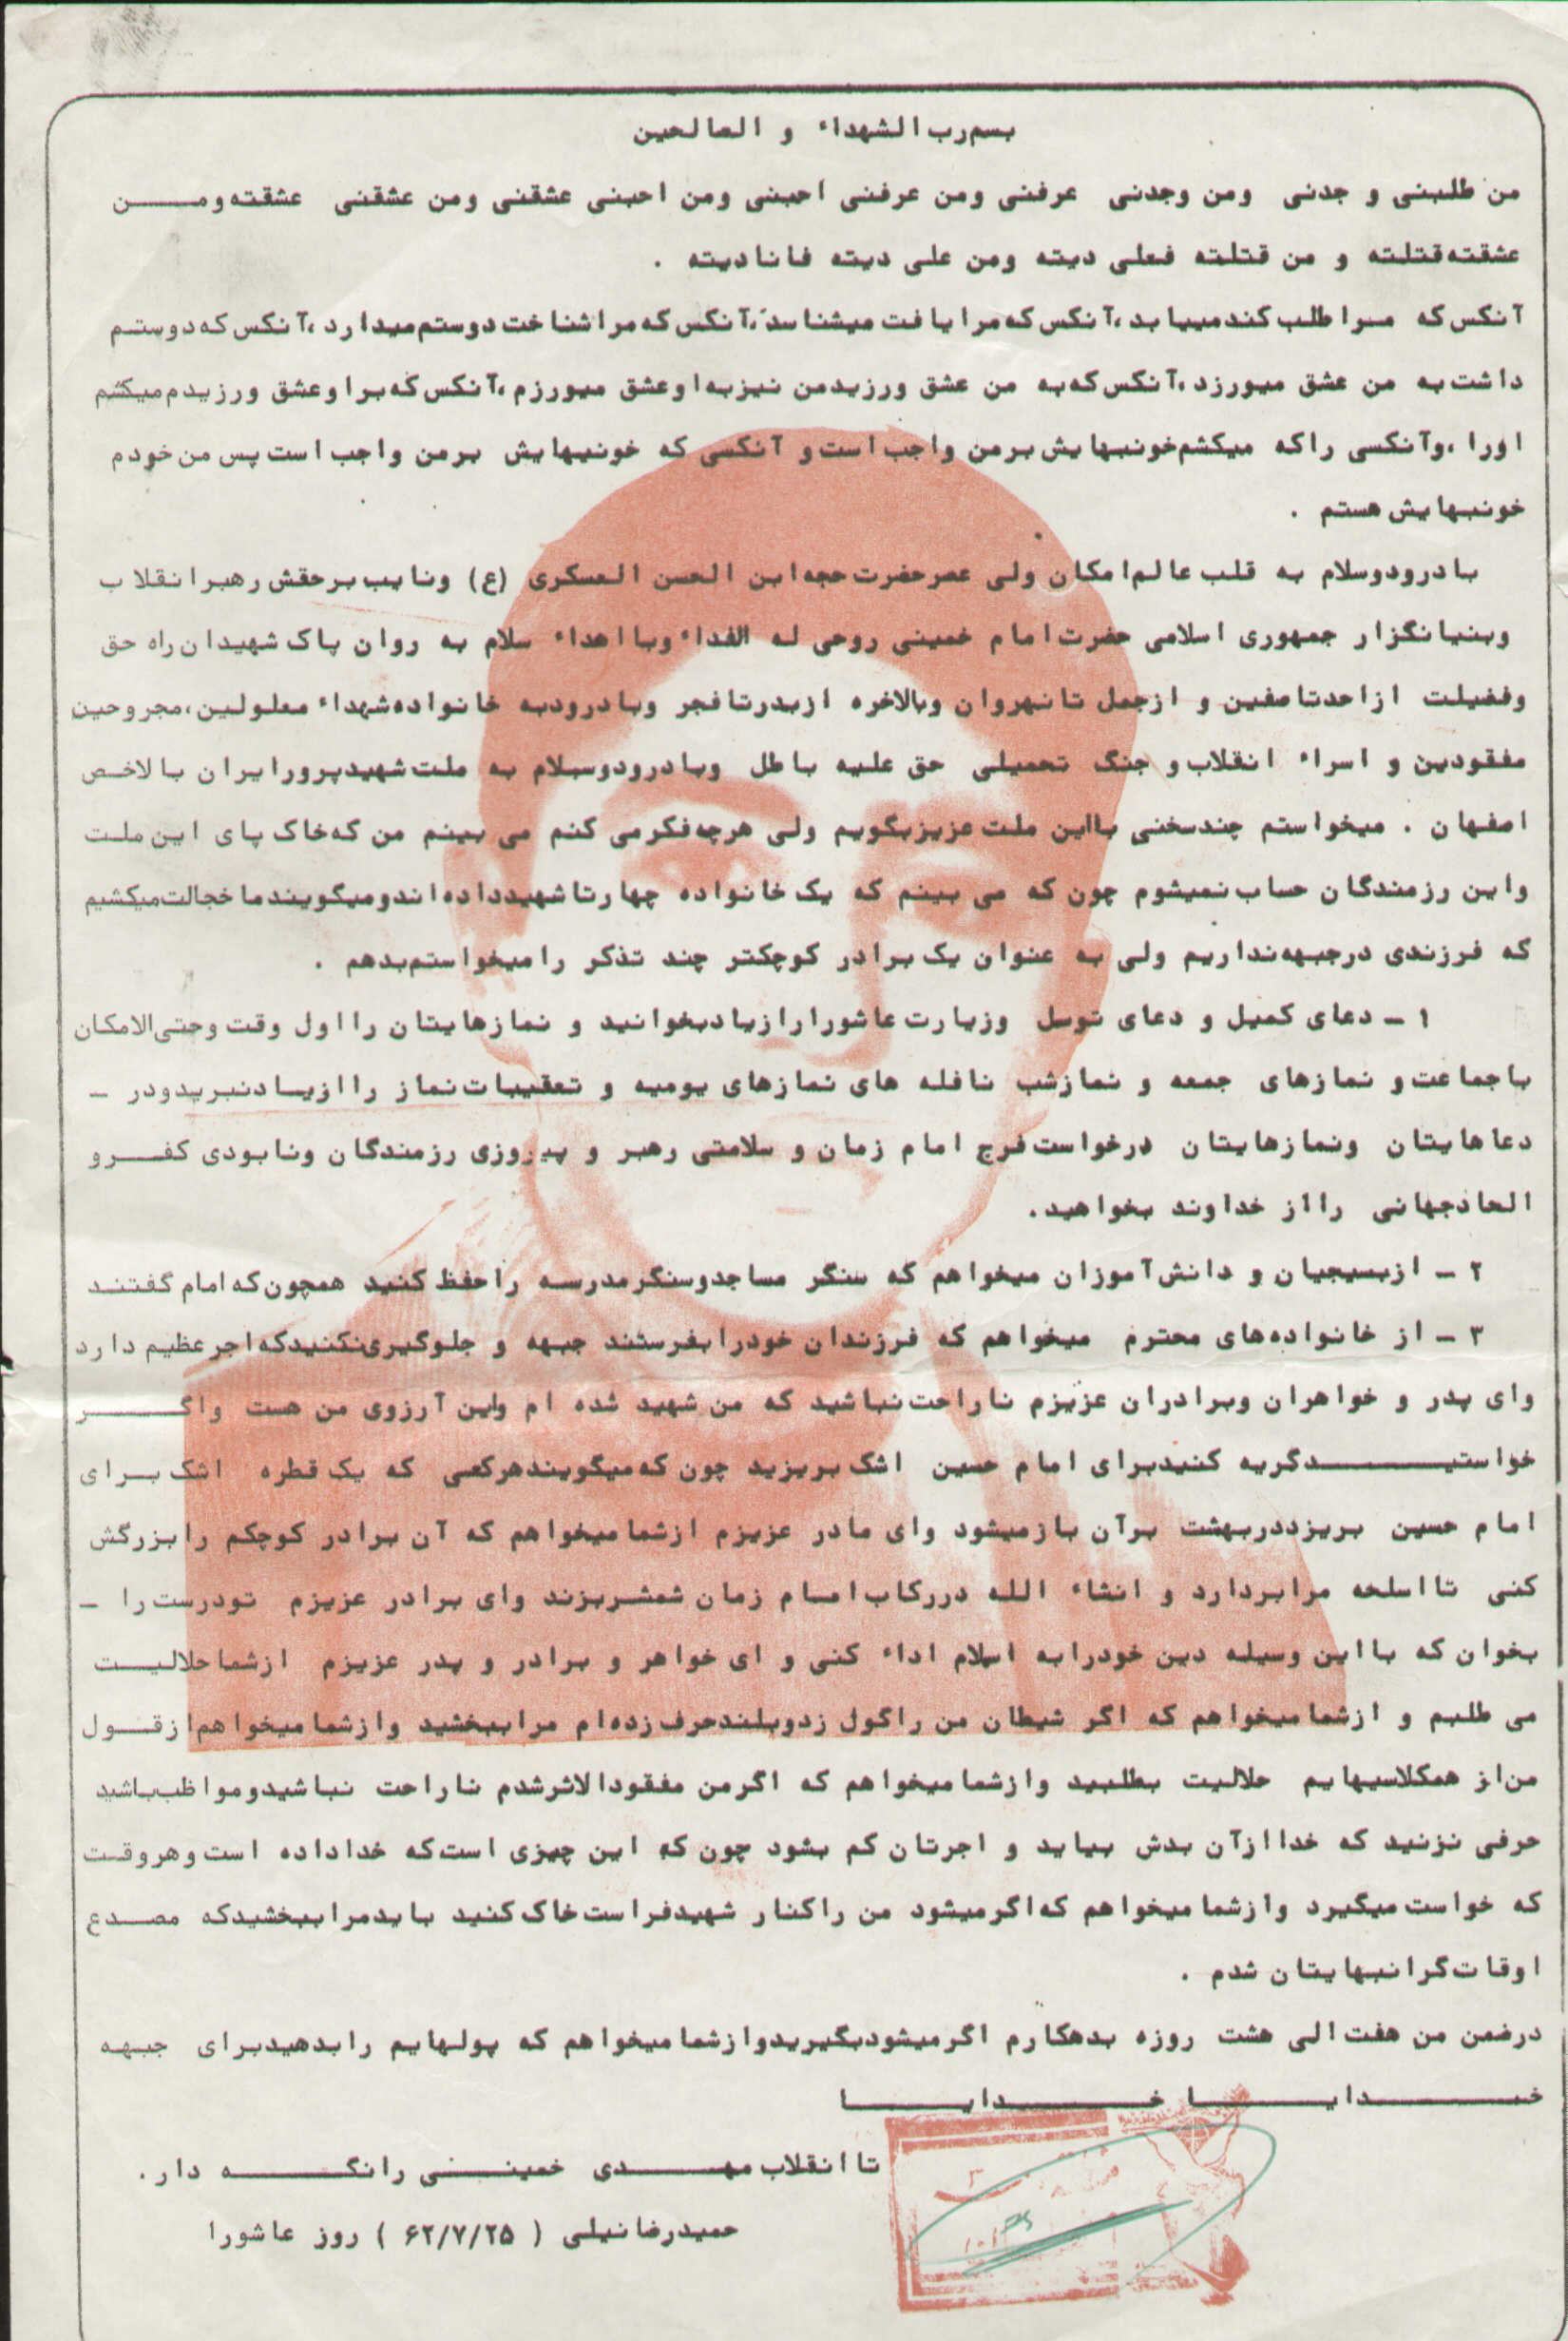 بسم رب الشهداء و الصالحین
من طلبنی و جدنی ومن وجدنی عرفنی ومن عرفنی احبنی ومن احبنی عشقنی ومن عشقنی عشقته ومن
عشقته قتلته و من قتلته فعلی دیته ومن علی دیته فانا دیته .
آنکس که مرا طلب کند مییابد ،آنکس که مرا یافت میشناسد ،آنکس که مرا شناخت دوستم میدارد ،آنکس که دوستم
داشت به من عشق میورزد ،آنکس که به من عشق ورزید من نیز به او عشق میورزم ،آنکس که بر او عشق ورزیدم میکشم
اورا ،وآنکسی راکه میکشم خونبهایش برمن واجب است و آنکسی که خونبهایش برمن واجب است پس من خودم
خونبهایش هستم .
با درود وسلام به قلب عالم امکان ولی عصر حضرت حجه ابن الحسن العسکری (ع) ونایب برحقش رهبر انقلاب
وبنیانگزار جمهوری اسلامی حضرت امام خمینی روحی له الفداء وبا اهداء سلام به روان پاک شهیدان راه حق
وفضیلت از احد تا صفین و ازجمل تا نهروان وبالاخره ازبدر تا فجر وبا درود به خانواده شهداء معلولین،مجروحین
مفقودین و اسراء انقلاب و جنگ تحمیلی حق علیه باطل وبا درود وسلام به ملت شهید پرور ایران بالاخص
اصفهان . میخواستم چند سخنی بااین ملت عزیز بگویم ولی هرچه فکر می کنم می بینم من که خاک پای این ملت
واین رزمندگان حساب نمیشوم چون که می بینم که یک خانواده چهارتا شهید داده اند و میگویند ما خجالت میکشیم
که فرزندی درجبهه نداریم ولی به عنوان یک برادر کوچکتر چند تذکر را میخواستم بدهم .
۱ - دعای کمیل و دعای توسل وزیارت عاشورا رازیاد بخوانید و نمازهایتان را اول وقت وحتی الامکان
با جماعت و نمازهای جمعه و نماز شب نافله های نمازهای یومیه و تعقیبات نماز را از یاد نبرید و در -
دعاهایتان ونمازهایتان درخواست فرج امام زمان و سلامتی رهبر و پیروزی رزمندگان ونابودی کفر و
الحاد جهانی را از خداوند بخواهید.
۲ - ازبسیجیان و دانش آموزان میخواهم که سنگر مساجد وسنگر مدرسه را حفظ کنید همچون که امام گفتند
۳ - از خانواده های محترم میخواهم که فرزندان خودرا بفرستند جبهه و جلوگیری نکنید که اجر عظیم دارد
وای پدر و خواهران وبرادران عزیزم ناراحت نباشید که من شهید شده ام واین آرزوی من هست واگر
خواستید گریه کنید برای امام حسین اشک بریزید چون که میگویند هرکسی که یک قطره اشک برای
امام حسین بریزد دربهشت برآن باز میشود وای مادر عزیزم ازشما میخواهم که آن برادر کوچکم را بزرگش
کنی تا اسلحه مرا بردارد و انشاء الله دررکاب امام زمان شمشربزند وای برادر عزیزم تو درست را -
بخوان که با این وسیله دین خودرا به اسلام اداء کنی و ای خواهر و برادر و پدر عزیزم ازشما حلالیت
می طلبم و ازشما میخواهم که اگر شیطان من راگول زد وبلند حرف زده ام مرا ببخشید وازشما میخواهم از قول
من از همکلاسیهایم حلالیت بطلبید وازشما میخواهم که اگر من مفقود الاثر شدم ناراحت نباشید و مواظب باشید
حرفی نزنید که خدا ازآن بدش بیاید و اجرتان کم بشود چون که این چیزی است که خدا داده است و هر وقت
که خواست میگیرد وازشما میخواهم که اگر میشود من را کنار شهید فراست خاک کنید باید مرا ببخشید که مصدع
اوقات گرانبهایتان شدم .
درضمن من هفت الی هشت روزه بدهکارم اگر میشود بگیرید وازشما میخواهم که پولهایم رابدهید برای جبهه
خدایا خدایا
تا انقلاب مهدی خمینی را نگه دار.
حمیدرضا نیلی ( ۶۲/۷/۲۵ ) روز عاشورا